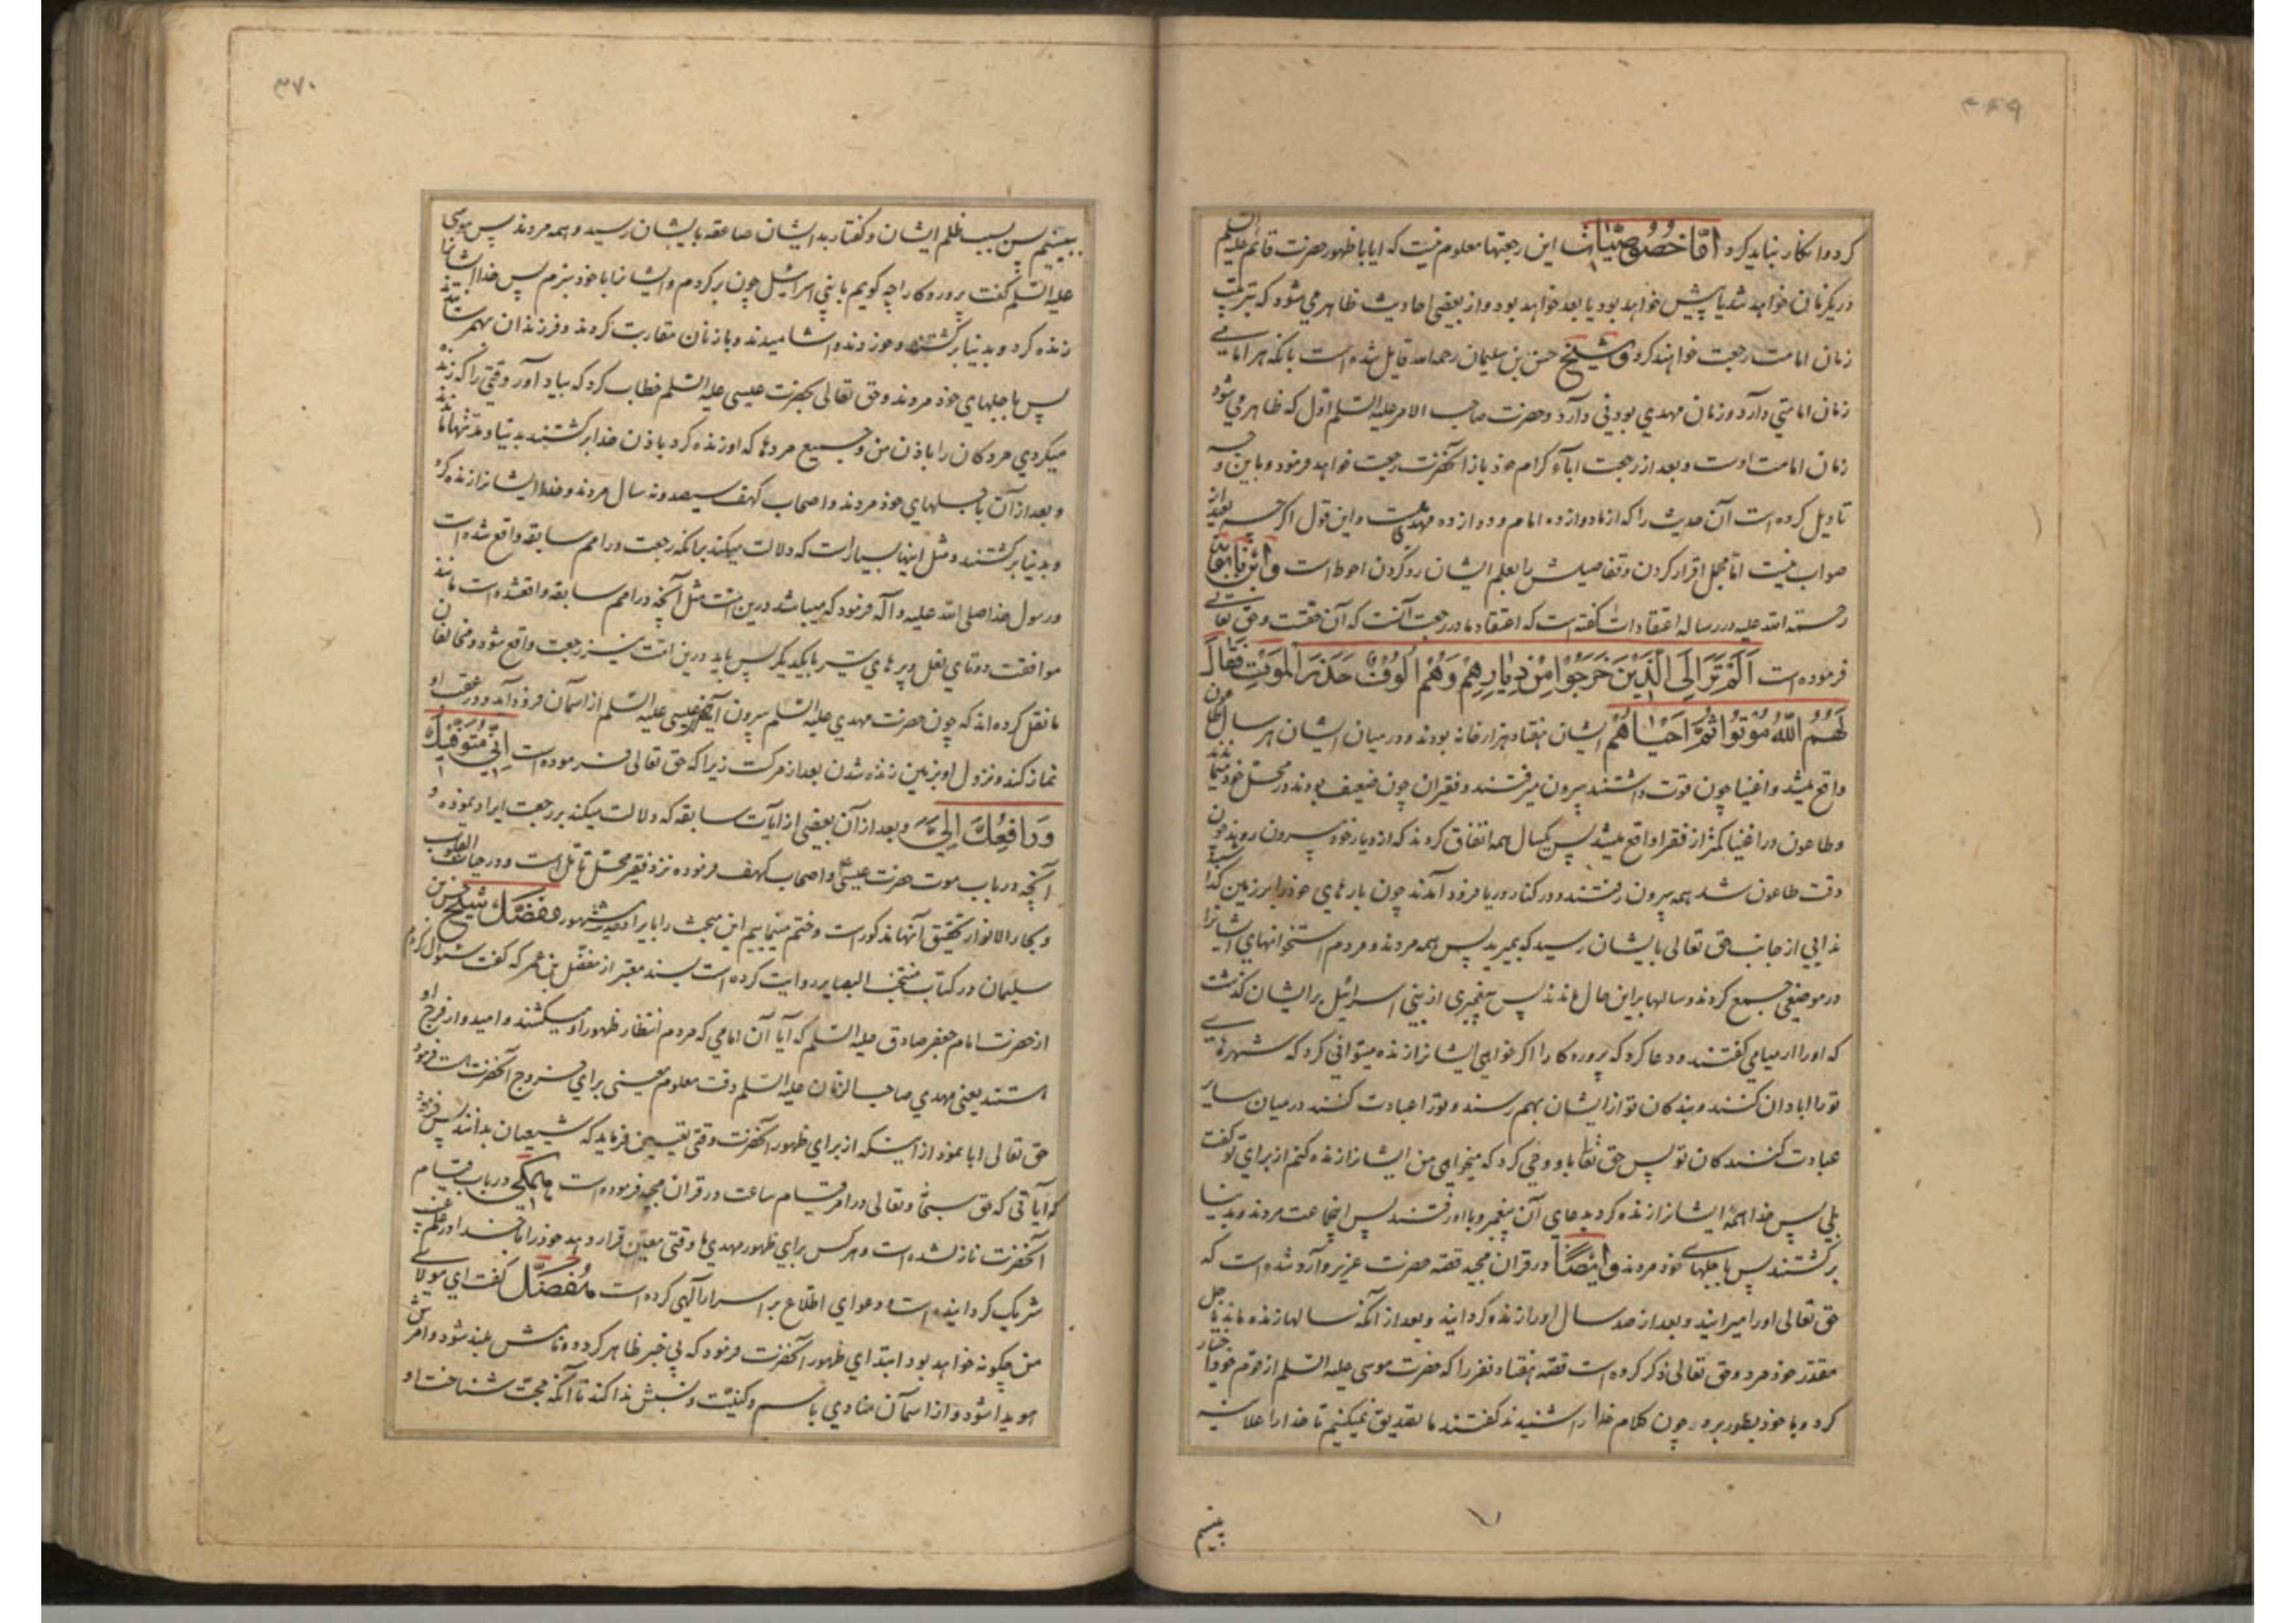 ۳۶۹
کرد و انکار نباید کرد اَمّا خُصُوصِیّات این رجعتها معلوم نیست که ایا با ظهور حضرت قائم علیه السلم
در یکزمان خواهد شد یا پیش خواهد بود یا بعد خواهد بود و از بعضی احادیث ظاهر می شود که بترتیب
زمان امامت رجعت خواهند کرد و شیخ حسن بن سلیمان رحمه الله قایل شده است بانکه هر امامی
زمان امامتی دارد و زمان مهدی بودنی دارد و حضرت صاحب الامر علیه السلم اول که ظاهر می شود
زمان امامت اوست و بعد از رجعت اباء کرام خود باز آنحضرت رجعت خواهد فرمود و باین وجه
تاویل کرده است آن حدیث را که از ما دوازده امام و دوازده مهدیست و این قول اگرچه بعید از
صواب نیست اما مجمل اقرار کردن و تفاصیلش را بعلم ایشان رد کردن احوط است و ابْن بابویه
رحمته الله علیه در رساله اعتقادات گفته است که اعتقاد ما در رجعت آنست که آن حقست و حق تعالی
فرموده است اَلَمْ تَرَ اِلَی الَّذینَ خَرَجُوا مِنْ دِیارِهِمْ وَهُمْ اُلُوفٌ حَذَرَ المَوْتِ فَقالَ
لَهُمُ اللّهُ مُوتُوا ثُمَّ اَحْیاهُمْ ایشان هفتاد هزار خانه بودند و در میان ایشان هر سال طاعون
واقع میشد و اغنیا چون قوت داشتند بیرون میرفتند و فقیران چون ضعیف بودند در محل خود میماندند
و طاعون در اغنیا کمتر از فقرا واقع میشد پس یکسال همه اتفاق کردند که از دیار خود بیرون روند چون
وقت طاعون شد همه بیرون رفتند و در کنار دریا فرود آمدند چون بارهای خود را بر زمین گذاشتند
ندایی از جانب حق تعالی بایشان رسید که بمیرید پس همه مردند و مردم استخوانهای ایشانرا
در موضعی جمع کردند و سالها براین حال ماندند پس پیغمبری از بنی اسرائیل بر ایشان گذشت
که او را ارمیا می گفتند و دعا کرد که پروردکارا اگر خواهی ایشانرا زنده میتوانی کرد که شهرهای
تو را ابادان کنند و بندکان تو از ایشان بهم رسند و تو را عبادت کنند در میان سایر
عبادت کنندکان تو پس حق تعا باو وحی کرد که میخواهی من ایشانرا زنده کنم از برای تو گفت
بلی پس خدا همهٔ ایشانرا زنده کرد بدعای آن پیغمبر و با او رفتند پس اینجماعت مردند و بدنیا
برگشتند پس باجلهای خود مردند و اَیْضًا در قران مجید قصه حضرت عزیر وارد شده است که
حق تعالی او را میرانید و بعد از صد سال او را زنده گردانید و بعد از آنکه سالها زنده ماند باجل
مقدر خود مرد و حق تعالی ذکر کرده است قصه هفتاد نفر را که حضرت موسی علیه السلم از قوم خود اختیار
کرد و با خود بطور برد و چون کلام خدا را شنیدند گفتند ما تصدیق نمیکنیم تا خدا را علانیه
ببینیم
۳۷۰
ببینیم پس بسبب ظلم ایشان و گفتار بد ایشان صاعقه بایشان رسید و همه مردند پس موسی
علیه السلم گفت پروردکارا چه گویم با بنی اسرائیل چون برگردم و ایشانرا با خود نبرم پس خدا ایشانرا
زنده کرد و بدنیا برگشتند و خوردند و اشامیدند و با زنان مقاربت کردند و فرزندان بهمرسانیدند
پس باجلهای خود مردند و حق تعالی بحضرت عیسی علیه السلم خطاب کرد که بیاد آور وقتی را که زنده
میکردی مردکان را باذن من و جمیع مردها که او زنده کرد باذن خدا برگشتند بدنیا و مدتها ماندند
و بعد از آن باجلهای خود مردند و اصحاب کهف سیصد و نه سال مردند و خدا ایشانرا زنده کرد
و بدنیا برگشتند و مثل اینها بسیار است که دلالت میکند بر انکه رجعت در امم سابقه واقع شده است
و رسول خدا صلی الله علیه و آله فرمود که میباشد درین امت مثل آنچه در امم سابقه واقعشده است مانند
موافقت دو تای نعل و پرهای تیر با یکدیگر پس باید درین امت نیز رجعت واقع شود و مخالفان
ما نقل کرده اند که چون حضرت مهدی علیه السلم بیرون آید عیسی علیه السلم از اسمان فرود آید و در عقب او
نماز کند و نزول او بزمین زنده شدن بعد از مرکست زیرا که حق تعالی فرموده است اِنّی مُتَوَفّیکَ
وَرافِعُکَ اِلَیَّ و بعد از آن بعضی از آیات سابقه که دلالت میکند بر رجعت ایراد نموده و
آنچه در باب موت حضرت عیسی و اصحاب کهف فرموده نزد فقیر محل تامل است و در حیات القلوب
و بحار الانوار تحقیق آنها مذکور است و ختم مینماییم این مبحث را بایراد حدیث مشهور مفضّل شیخ حسن بن
سلیمان در کتاب منتخب البصایر روایت کرده است بسند معتبر از مفضل بن عمر که گفت سئوال کردم
از حضرت امام جعفر صادق علیه السلم که آیا آن امامی که مردم انتظار ظهور او میکشند و امیدوار فرج او
هستند یعنی مهدی صاحب الزمان علیه السلم وقت معلوم معینی برای خروج آنحضرت هست فرمود
حق تعالی ابا نمود از اینکه از برای ظهور آنحضرت وقتی تعیین فرماید که شیعیان بدانند پس فرمود
که آیاتی که حق سبحانه و تعالی در امر قیام ساعت در قران مجید فرموده است همکی در باب قیام
آنحضرت نازل شده است و هر کس برای ظهور مهدی ما وقتی معین قرار دهد خود را با خدا در علم غیب
شریک کردانیده است و دعوای اطلاع بر اسرار الهی کرده است مُفَضَّل گفت ای مولای
من چگونه خواهد بود ابتدای ظهور آنحضرت فرمود که بی خبر ظاهر کردد و نامش بلند شود و امرش
هویدا شود و از اسمان منادی باسم و کنیت و نسبش ندا کند تا آنکه حجت شناخت او